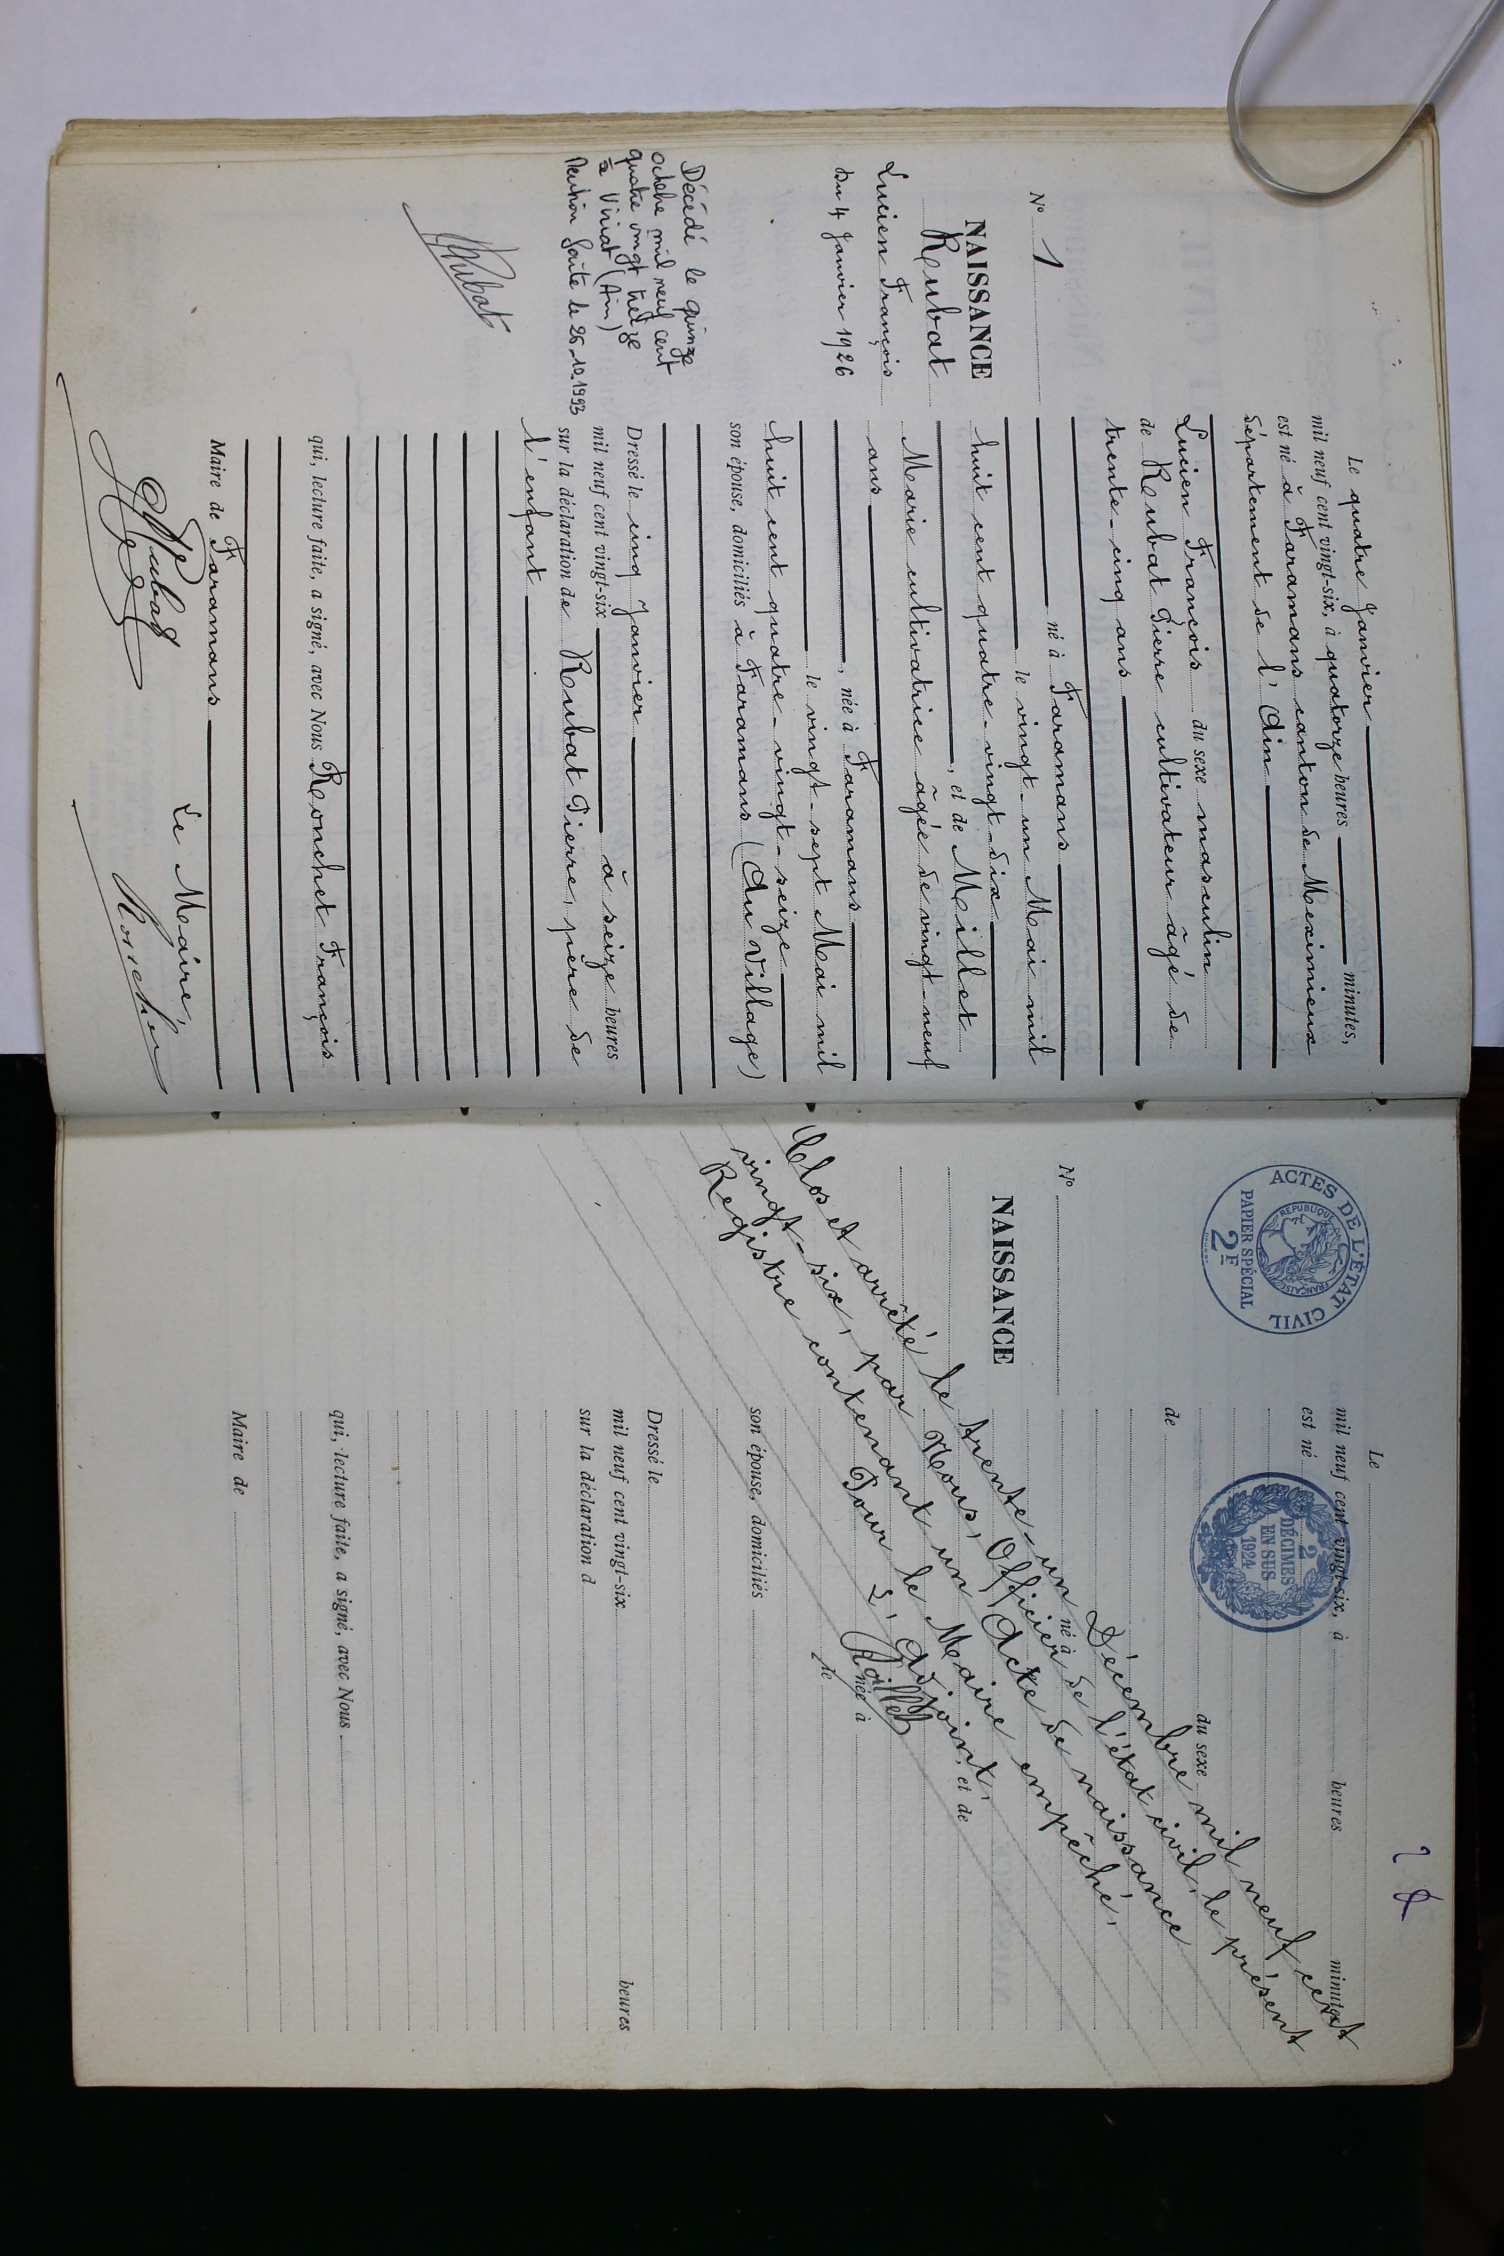 N° 1
NAISSANCE
Rubat
Lucien François
Du 4 Janvier 1926
Décédé le quinze
octobre mil neuf cent
quatre vingt treize
à Viriat (Ain)
Mention faite le 26.10.1993
Rubat
Le quatre Janvier
mil neuf cent vingt-six, à quatorze heures minutes,
est né à Faramans canton de Meximieux
département de l'Ain
Lucien François du sexe masculin
de Rubat Pierre cultivateur âgé de
trente-cinq ans
né à Faramans
le vingt-un Mai mil
huit cent quatre-vingt-dix
, et de Millet
Marie cultivatrice âgée de vingt-neuf
ans
, née à Faramans
le vingt-sept Mai mil
huit cent quatre-vingt-seize
son épouse, domiciliés à Faramans (Au Village)
Dressé le cinq Janvier
mil neuf cent vingt-six à seize heures
sur la déclaration de Rubat Pierre, père de
l'enfant
qui, lecture faite, a signé, avec Nous Ronchet François
Maire de Faramans
Le Maire,
Rubat
Ronchet
ACTES DE L'ÉTAT CIVIL
RÉPUBLIQUE FRANÇAISE
PAPIER SPÉCIAL
2F
2
DÉCIMES
EN SUS
1924
N°
NAISSANCE
Le
mil neuf cent vingt-six, à heures minutes
est né
du sexe
de
né à
, et de
née à
le
son épouse, domiciliés
Dressé le
mil neuf cent vingt-six heures
sur la déclaration d
qui, lecture faite, a signé, avec Nous
Maire de
Clos et arrêté le trente-un Décembre mil neuf cent
vingt-six, par Nous, Officier de l'état civil, le présent
Registre contenant un Acte de naissance
Pour le Maire empêché,
L'Adjoint,